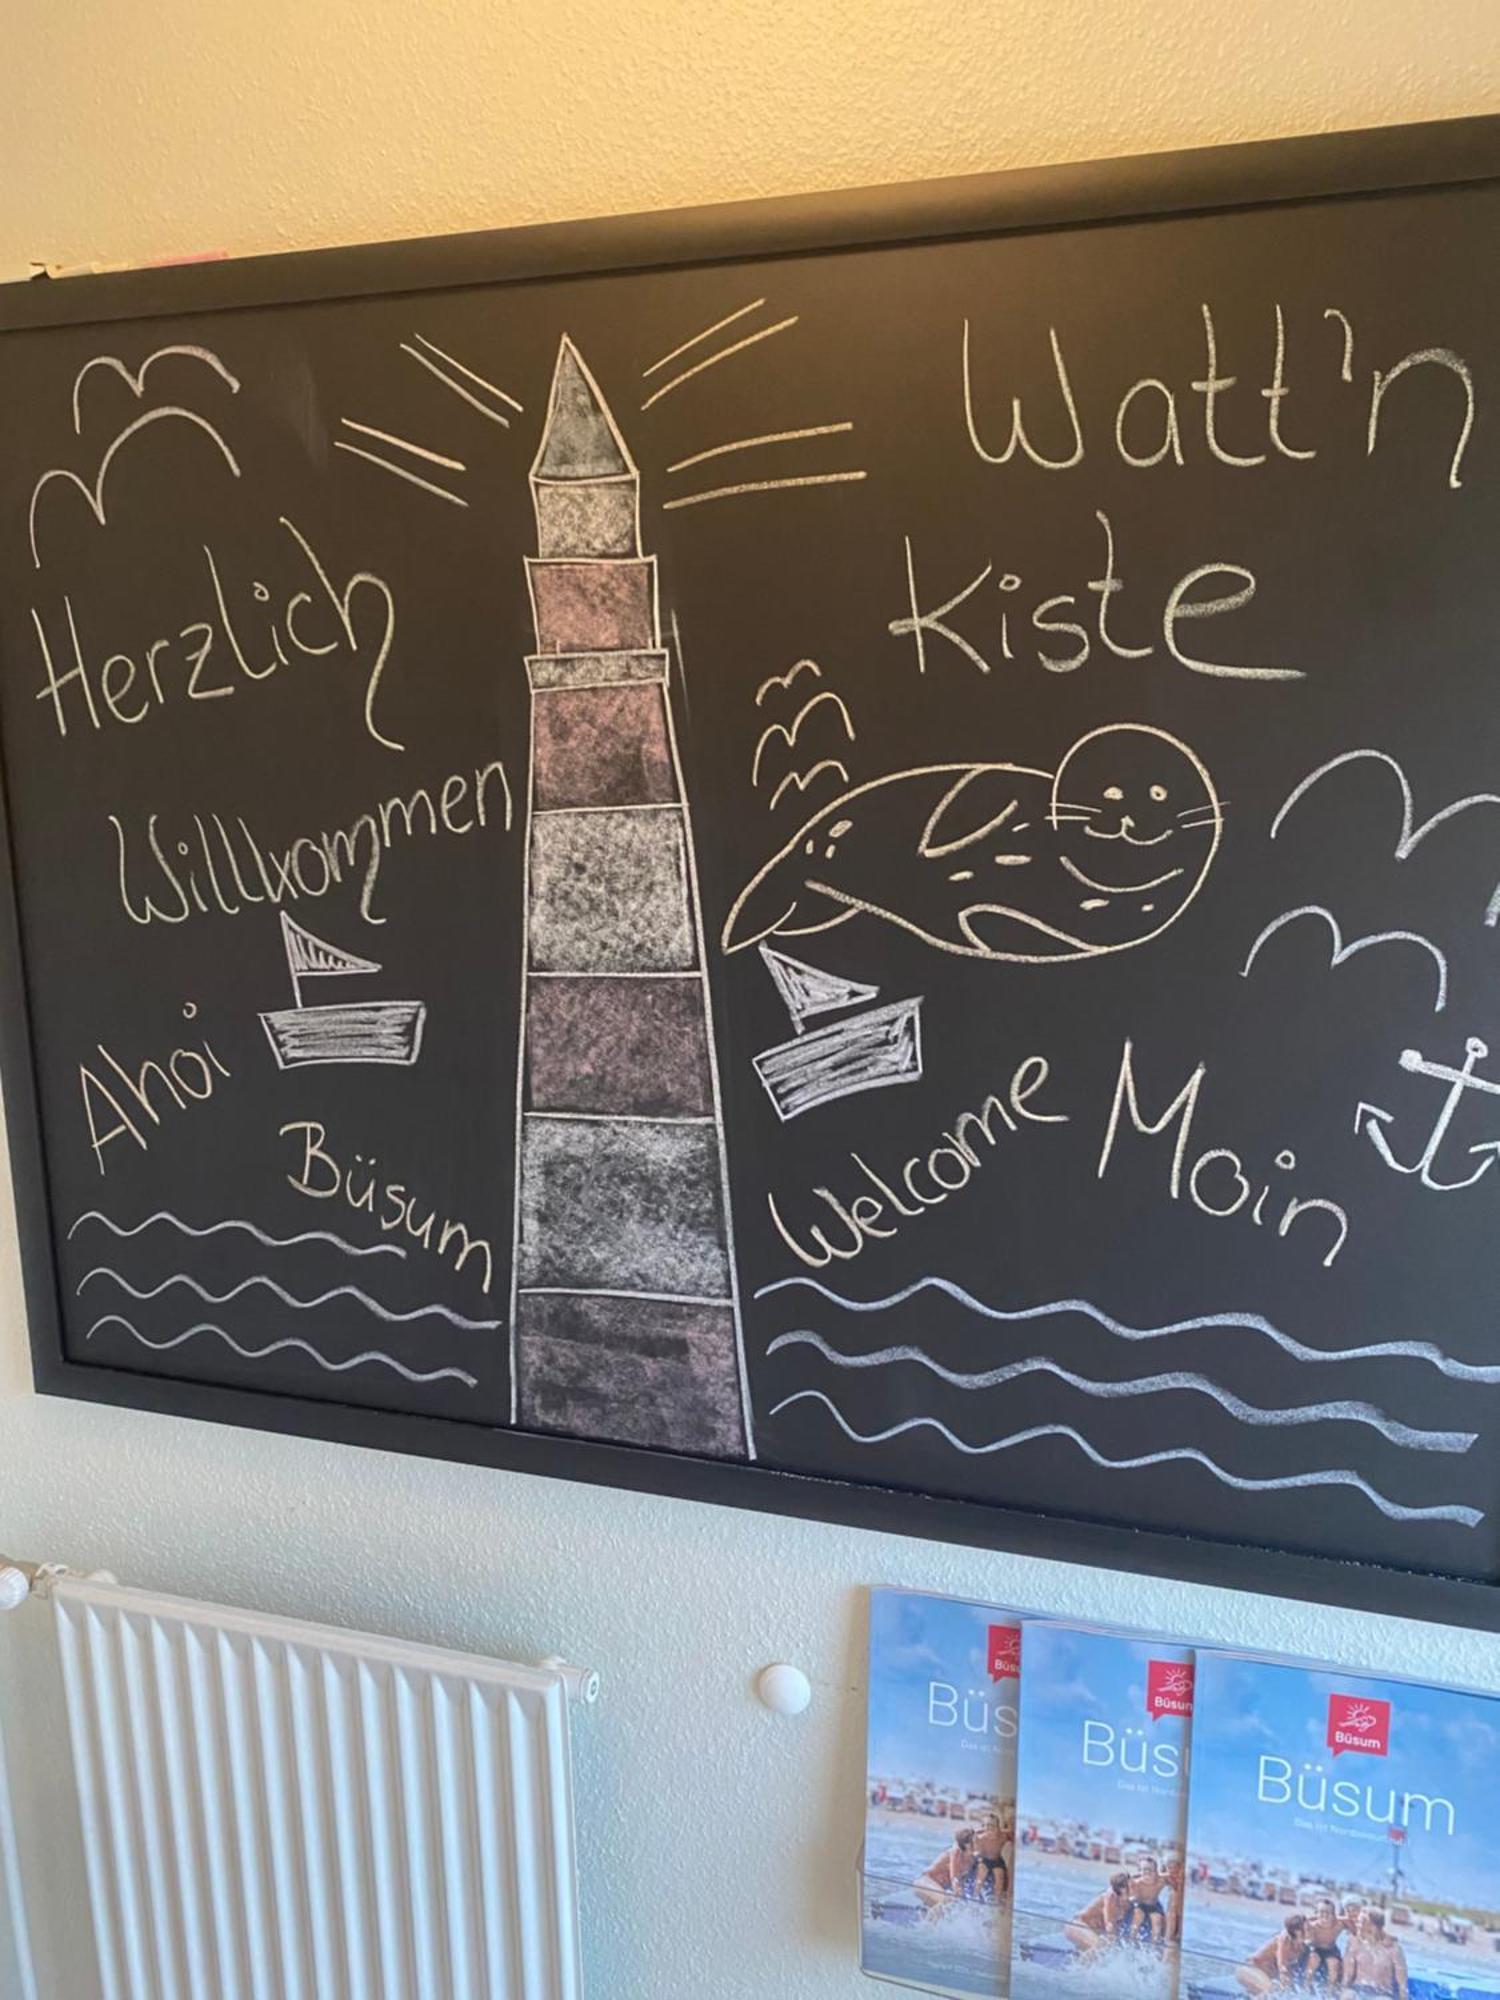 Watt'n
Kiste
Herzlich
Willkommen
Ahoi
Büsum
Welcome
Moin
Büsum
Büsum
Büsum
Büsum
Das ist Nordseeurlaub